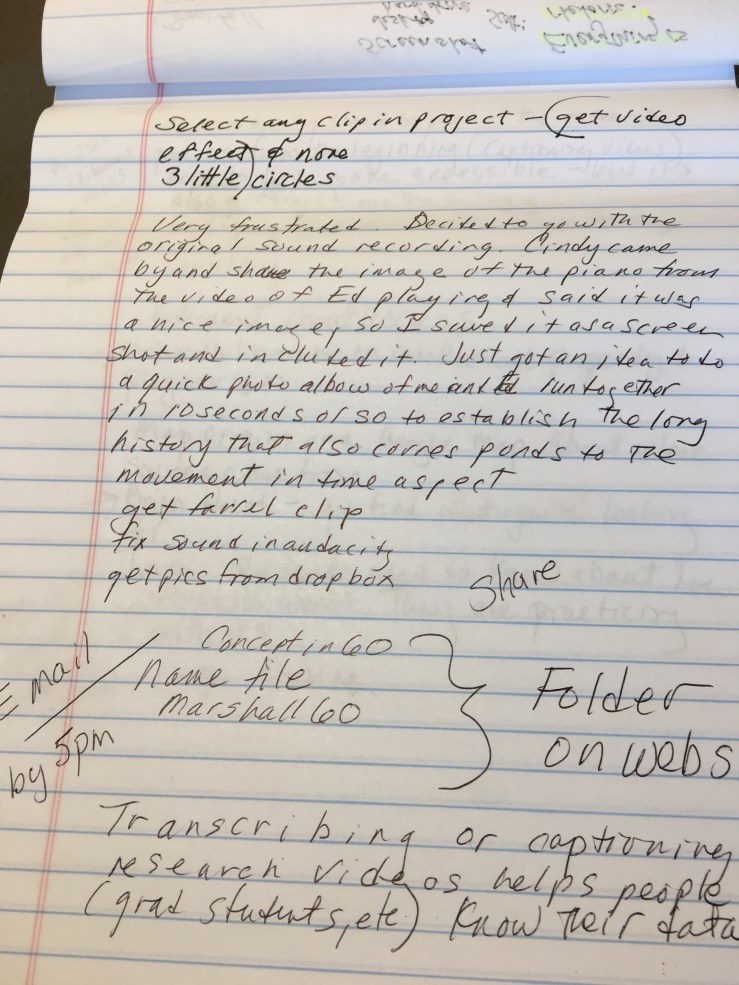 Select any clip in project – (get video
effect) & none
3 little circles
Very frustrated. Decided to go with the
original sound recording. Cindy came
by and the image of the piano from
the video of Ed playing & said it was
a nice image, so I saved it as a screen
shot and included it. Just got an idea to do
a quick photo albow of me and Ed run together
in 10 seconds or so to establish the long
history that also corresponds to the
movement in time aspect
get farrel clip
fix sound in audacity
get pics from dropbox
Share
Concept in 60
Email
name file
Marshall 60
by 5pm
Folder
on webs
Transcribing or captioning
research videos helps people
(grad students, etc) Know their data